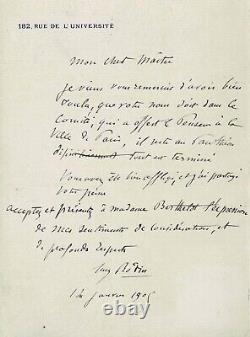 182, RUE DE L'UNIVERSITÉ
Mon cher Maître
Je viens vous remercier d'avoir bien
voulu, que votre nom soit dans le
Comité, qui a offert le Penseur à la
Ville de Paris, il reste au Panthéon
tout est terminé
Vous avez été bien affligé, et j'ai partagé
votre peine
acceptez et présentez à madame Berthelot l'expression
de mes sentiments de considération, et
de profonds respects
Aug Rodin
janvier 1905